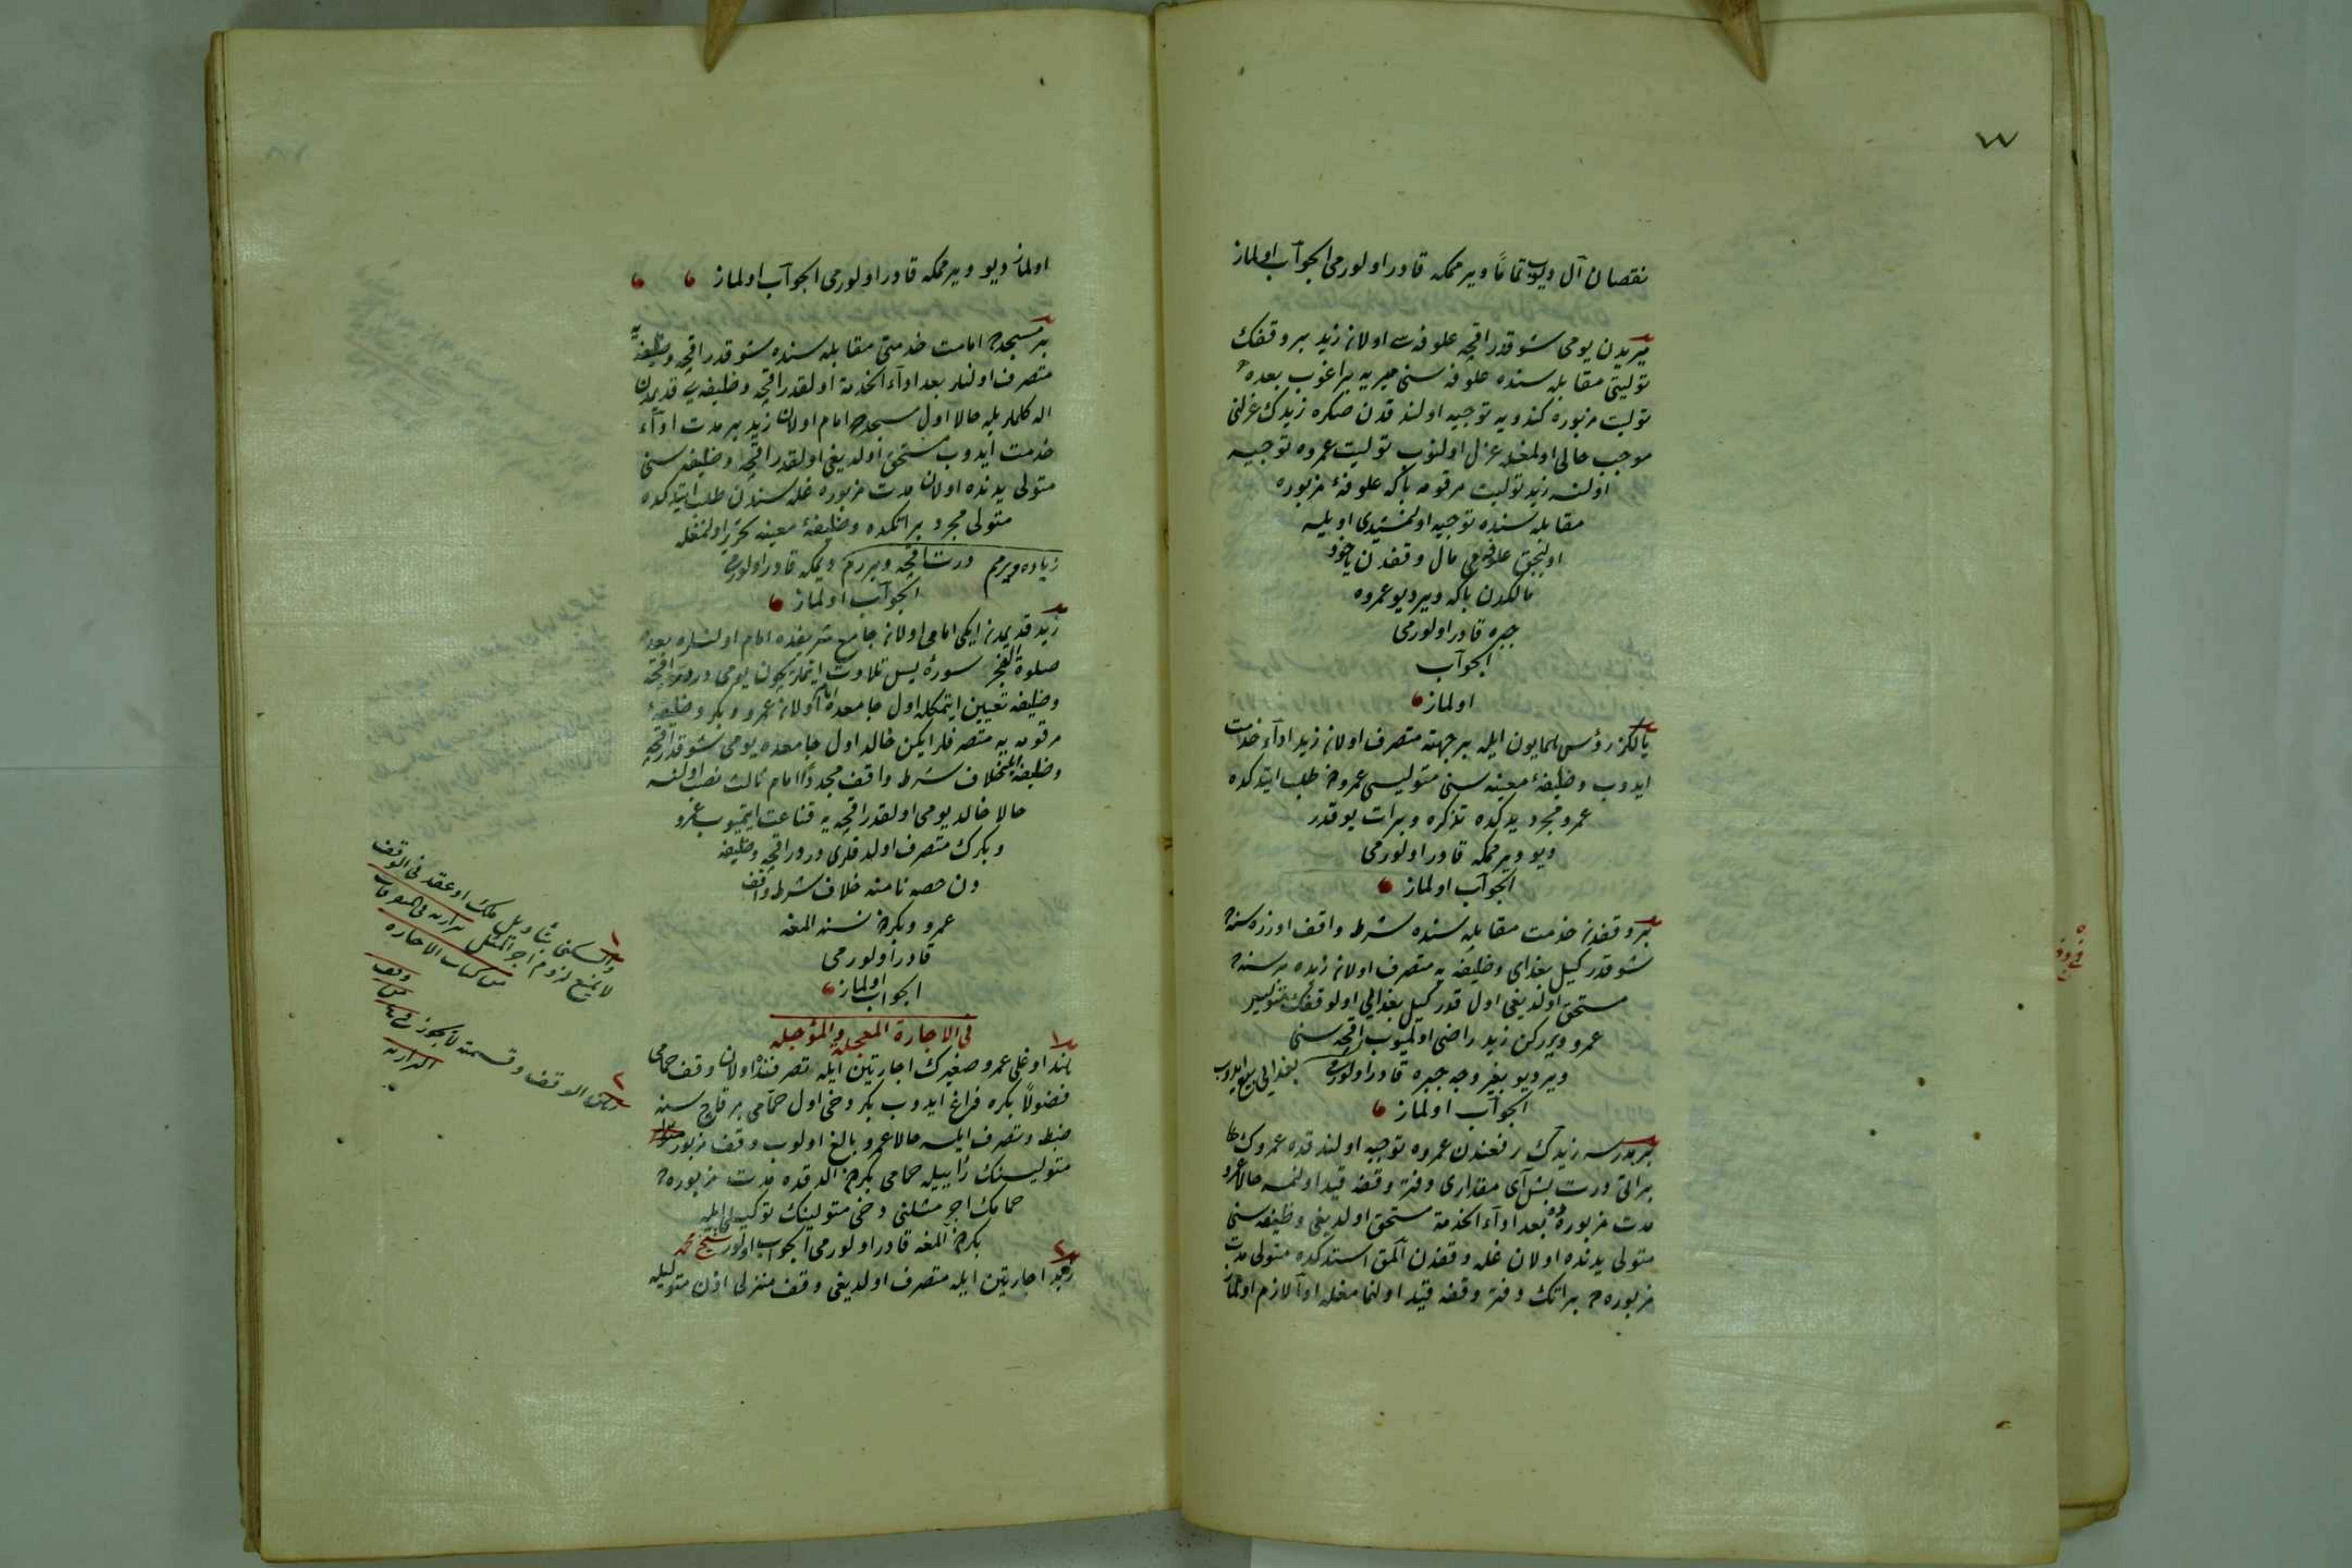 ٧٧
نقصان آل ديوب تماماً ويرممكه قادر اولورمى الجواب اولماز
ميريدن يومى شو قدر اقچه علوفه‌سى اولان زيد بر وقفك
توليتى مقابله‌سنده علوفه‌سنى ميريه براغوب بعده
توليت مزبوره كندويه توجيه اولندقدن صكره زيدك عزلنى
موجب حالى اولمغله عزل اولنوب توليت عمروه توجيه
اولنسه زيد توليت مرقومه بكا علوفهٔ مزبوره
مقابله‌سنده توجيه اولنمشيدى اويله
اولنجق علوفه‌مى مال وقفدن ياخود
مالكدن بكا وير ديو عمروه
جبره قادر اولورمى
الجواب
اولماز
يالكز رؤس همايون ايله بر جهته متصرف اولان زيد اداء خدمت
ايدوب وظيفهٔ معينه‌سنى متوليسى عمرودن طلب ايتدكده
عمرو مجرد يدكده تذكره وبرات يوقدر
ديو ويرممكه قادر اولورمى
الجواب اولماز
بر وقفدن خدمت مقابله‌سنده شرط واقف اوزره سنه‌ده
شو قدر كيل بغداى وظيفه‌يه متصرف اولان زيده بر سنه‌ده
مستحق اولديغى اول قدر كيل بغدايى اول وقفك متوليسى
عمرو ويرركن زيد راضى اولميوب اقچه‌سنى
وير ديو بغير وجه جبره قادر اولورمى
بغدايى بيع ايدوب
الجواب اولماز
بر مدرسه زيدك رفعندن عمروه توجيه اولندقده عمروك
براتى درت بش آى مقدارى دفتر وقفه قيد اولنمسه حالا عمرو
مدت مزبوره‌ده بعد اداء الخدمة مستحق اولديغى وظيفه‌سنى
متولى يدنده اولان غله وقفدن آلمق استدكده متولى مدت
مزبوره‌ده براتك دفتر وقفه قيد اولنمامغله ادا لازم اولماز
اولماز ديو ويرممكه قادر اولورمى الجواب اولماز
بر مسجدده امامت خدمتى مقابله‌سنده شو قدر اقچه وظيفه‌يه
متصرف اولنلر بعد اداء الخدمة اولقدر اقچه وظيفه‌يى قديمدن
اله كلملريله حالا اول مسجدده امام اولان زيد بر مدت اداء
خدمت ايدوب مستحق اولديغى اولقدر اقچه وظيفه‌سنى
متولى يدنده اولان مدت مزبوره غله‌سندن طلب ايتدكده
متولى مجرد براتكده وظيفهٔ معينه تحرير اولنمغله
زياده ويرمم درت اقچه ويررم ديمكه قادر اولورمى
الجواب اولماز
زيد قديمدن ايكى امامى اولان جامع شريفده امام اولنلره بعد
صلوة الفجر سورهٔ يس تلاوت ايتملريچون يومى دردر اقچه
وظيفه تعيين ايتمكله اول جامعده امام اولان عمرو وبكر وظيفهٔ
مرقومه‌يه متصرفلر ايكن خالد اول جامعده يومى شو قدر اقچه
وظيفه ايله خلاف شرط واقف مجدداً امام ثالث نصب اولنسه
حالا خالد يومى اولقدر اقچه‌يه قناعت ايتميوب عمرو
وبكرك متصرف اولدقلرى دردر اقچه وظيفه
دن حصه نامنه خلاف شرط واقف
عمرو وبكردن نسنه المغه
قادر اولورمى
الجواب اولماز
فى الاجارة المعجله والمؤجله
١
هند اوغلى عمرو صغيرك اجارتين ايله تصرفنده اولان وقف حمامى
فضولاً بكره فراغ ايدوب بكر دخى اول حمامى بر قاچ سنه
ضبط وتصرف ايلسه حالا عمرو بالغ اولوب وقف مزبور
متوليسنك رأييله حمامى بكردن الدقده مدت مزبوره‌ده
حمامك اجر مثلنى دخى متولينك توكيلى ايله
بكردن المغه قادر اولورمى الجواب اولور شيخ محمد
٢
زيد اجارتين ايله متصرف اولديغى وقف منزلى اذن متوليله
١
والسكنى بتأويل ملك او عقد فى الوقف
لا يمنع لزوم اجر المثل
من كتاب الاجاره
٢
رهن الوقف وقسمته لا يجوز